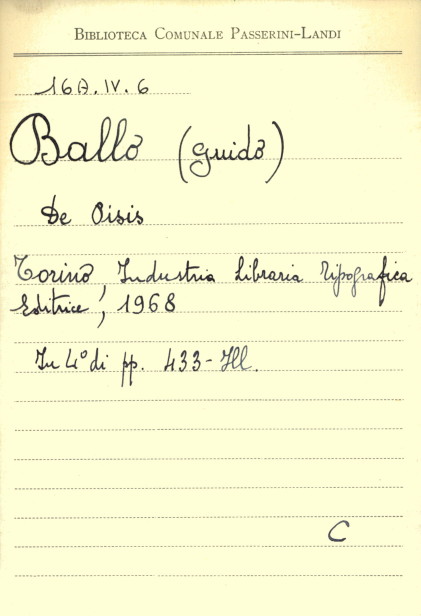 BIBLIOTECA COMUNALE PASSERINI-LANDI
16A.IV.6
Ballo (Guido)
De Pisis
Torino, Industria Libraria Tipografica
Editrice, 1968
In 4° di pp. 433 - Ill.
C